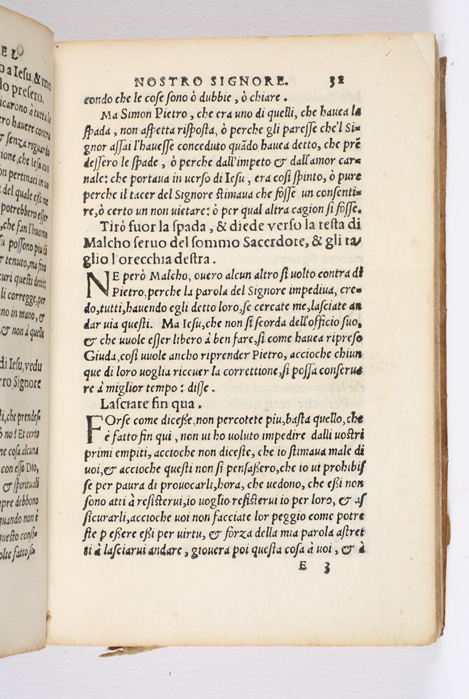 EL
o a Iesu, & mo
lo presero.
NOSTRO SIGNORE. 38
condo che le cose sono ò dubbie, ò chiare.
Ma Simon Pietro, che era uno di quelli, che hauea la
spada, non aspetta risposta, ò perche gli paresse che'l Si-
gnor assai l'hauesse conceduto quãdo hauea detto, che prẽ
dessero le spade, ò perche dall'impeto & dall'amor car-
nale: che portaua in uerso di Iesu, era così spinto, ò pure
perche il tacer del Signore stimaua che fosse un consenti-
re, ò certo un non uietare: ò per qual altra cagion si fosse.
Tirò fuor la spada, & diede verso la testa di
Malcho seruo del sommo Sacerdote, & gli ta
glio l'orecchia destra.
NE però Malcho, ouero alcun altro si uolto contra di
Pietro, perche la parola del Signore impediua, cre-
do, tutti, hauendo egli detto loro, se cercate me, lasciate an
dar uia questi. Ma Iesu, che non si scorda dell'officio suo,
& che uuole esser libero à ben fare, sì come hauea ripreso
Giuda, così uuole anchor riprender Pietro, accioche chiun
que di loro uoglia riceuer la correttione, si possa conserua
re à miglior tempo: disse.
Lasciate fin qua.
FOrse come dicesse, non percotete piu, basta quello, che
è fatto fin qui, non ui ho uoluto impedire dalli uostri
primi empiti, accioche non diceste, che io stimaua male di
uoi, & accioche questi non si pensassero, che io ui prohibis
se per paura di prouocarli, hora, che uedono, che essi non
sono atti à resisterui, io uoglio resisterui io per loro, & as
sicurarli, accioche uoi non facciate lor peggio come potre
ste p essere essi per uirtu, & forza della mia parola astret
ti à lasciarui andare, giouera poi questa cosa à uoi, & à
E 3